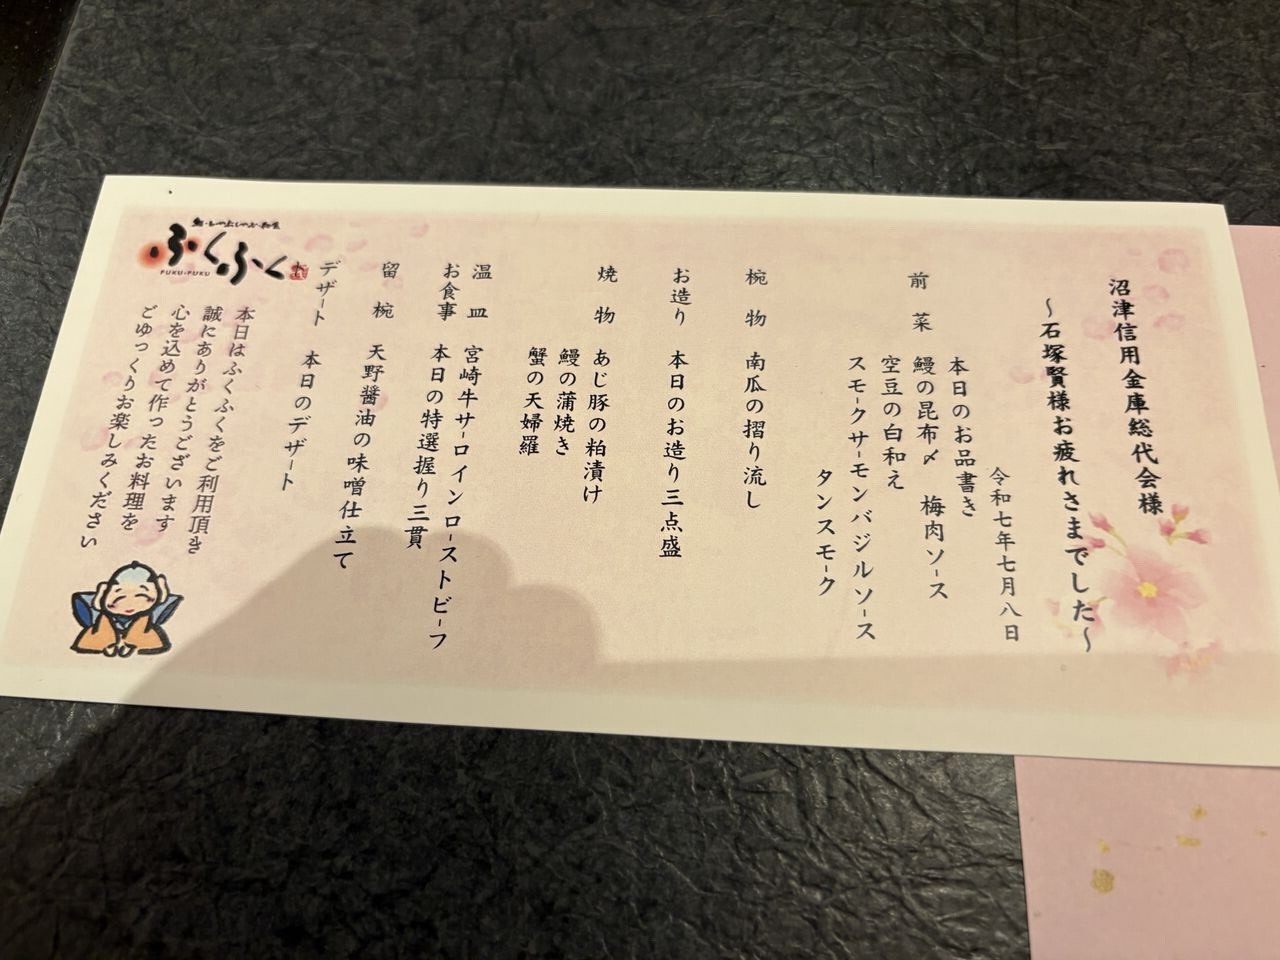 沼津信用金庫総代会様
～石塚賢様お疲れさまでした～
令和七年七月八日
本日のお品書き
前菜 鰻の昆布〆 梅肉ソース
空豆の白和え
スモークサーモンバジルソース
タンスモーク
椀物 南瓜の摺り流し
お造り 本日のお造り三点盛
焼物 あじ豚の粕漬け
鰻の蒲焼き
蟹の天婦羅
温皿 宮崎牛サーロインローストビーフ
お食事 本日の特選握り三貫
留椀 天野醤油の味噌仕立て
デザート 本日のデザート
ふくふく
FUKU-FUKU
本日はふくふくをご利用頂き
誠にありがとうございます
心を込めて作ったお料理を
ごゆっくりお楽しみください